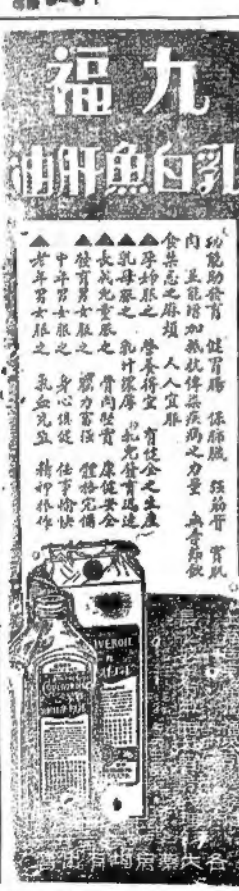 九福
乳白魚肝油
功能助發育 健胃腸 保肺臟 強筋骨 實肌
肉 並能增加抵抗傳染疾病之力量 無需節飲
食禁忌之麻煩 人人宜服
▲孕婦服之 營養得宜 有健全之生產
▲乳母服之 乳汁濃厚 乳兒發育迅速
▲長成兒童服之 骨肉堅實 康健安全
▲發育男女服之 筋力富强 體格完備
▲中年男女服之 身心俱健 任事愉快
▲老年男女服之 氣血充盈 精神振作
各大藥房均有出售